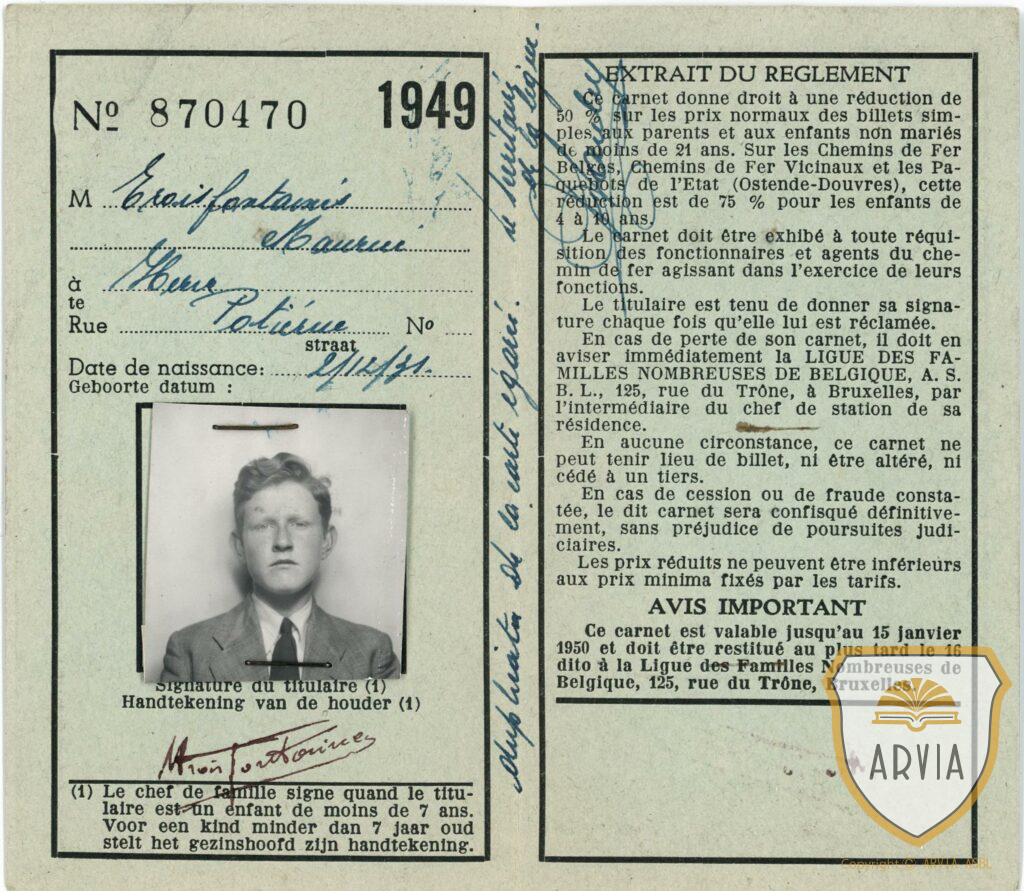 Nº 870470 1949
M Troisfontaines
Maurice
à Herve
te
Rue Potiérue Nº
straat
Date de naissance: 2/12/31.
Geboorte datum :
Signature du titulaire (1)
Handtekening van de houder (1)
MTroisfontaines
(1) Le chef de famille signe quand le titu-
laire est un enfant de moins de 7 ans.
Voor een kind minder dan 7 jaar oud
stelt het gezinshoofd zijn handtekening.
duplicata de la carte égarée. le secrétaire
de la ligue.
EXTRAIT DU REGLEMENT
Ce carnet donne droit à une réduction de
50 % sur les prix normaux des billets sim-
ples aux parents et aux enfants non mariés
de moins de 21 ans. Sur les Chemins de Fer
Belges, Chemins de Fer Vicinaux et les Pa-
quebots de l'Etat (Ostende-Douvres), cette
réduction est de 75 % pour les enfants de
4 à 10 ans.
Le carnet doit être exhibé à toute réqui-
sition des fonctionnaires et agents du che-
min de fer agissant dans l'exercice de leurs
fonctions.
Le titulaire est tenu de donner sa signa-
ture chaque fois qu'elle lui est réclamée.
En cas de perte de son carnet, il doit en
aviser immédiatement la LIGUE DES FA-
MILLES NOMBREUSES DE BELGIQUE, A. S.
B. L., 125, rue du Trône, à Bruxelles, par
l'intermédiaire du chef de station de sa
résidence.
En aucune circonstance, ce carnet ne
peut tenir lieu de billet, ni être altéré, ni
cédé à un tiers.
En cas de cession ou de fraude consta-
tée, le dit carnet sera confisqué définitive-
ment, sans préjudice de poursuites judi-
ciaires.
Les prix réduits ne peuvent être inférieurs
aux prix minima fixés par les tarifs.
AVIS IMPORTANT
Ce carnet est valable jusqu'au 15 janvier
1950 et doit être restitué au plus tard le 16
dito à la Ligue des Familles Nombreuses de
Belgique, 125, rue du Trône, Bruxelles.
ARVIA
Copyright © ARVIA ASBL